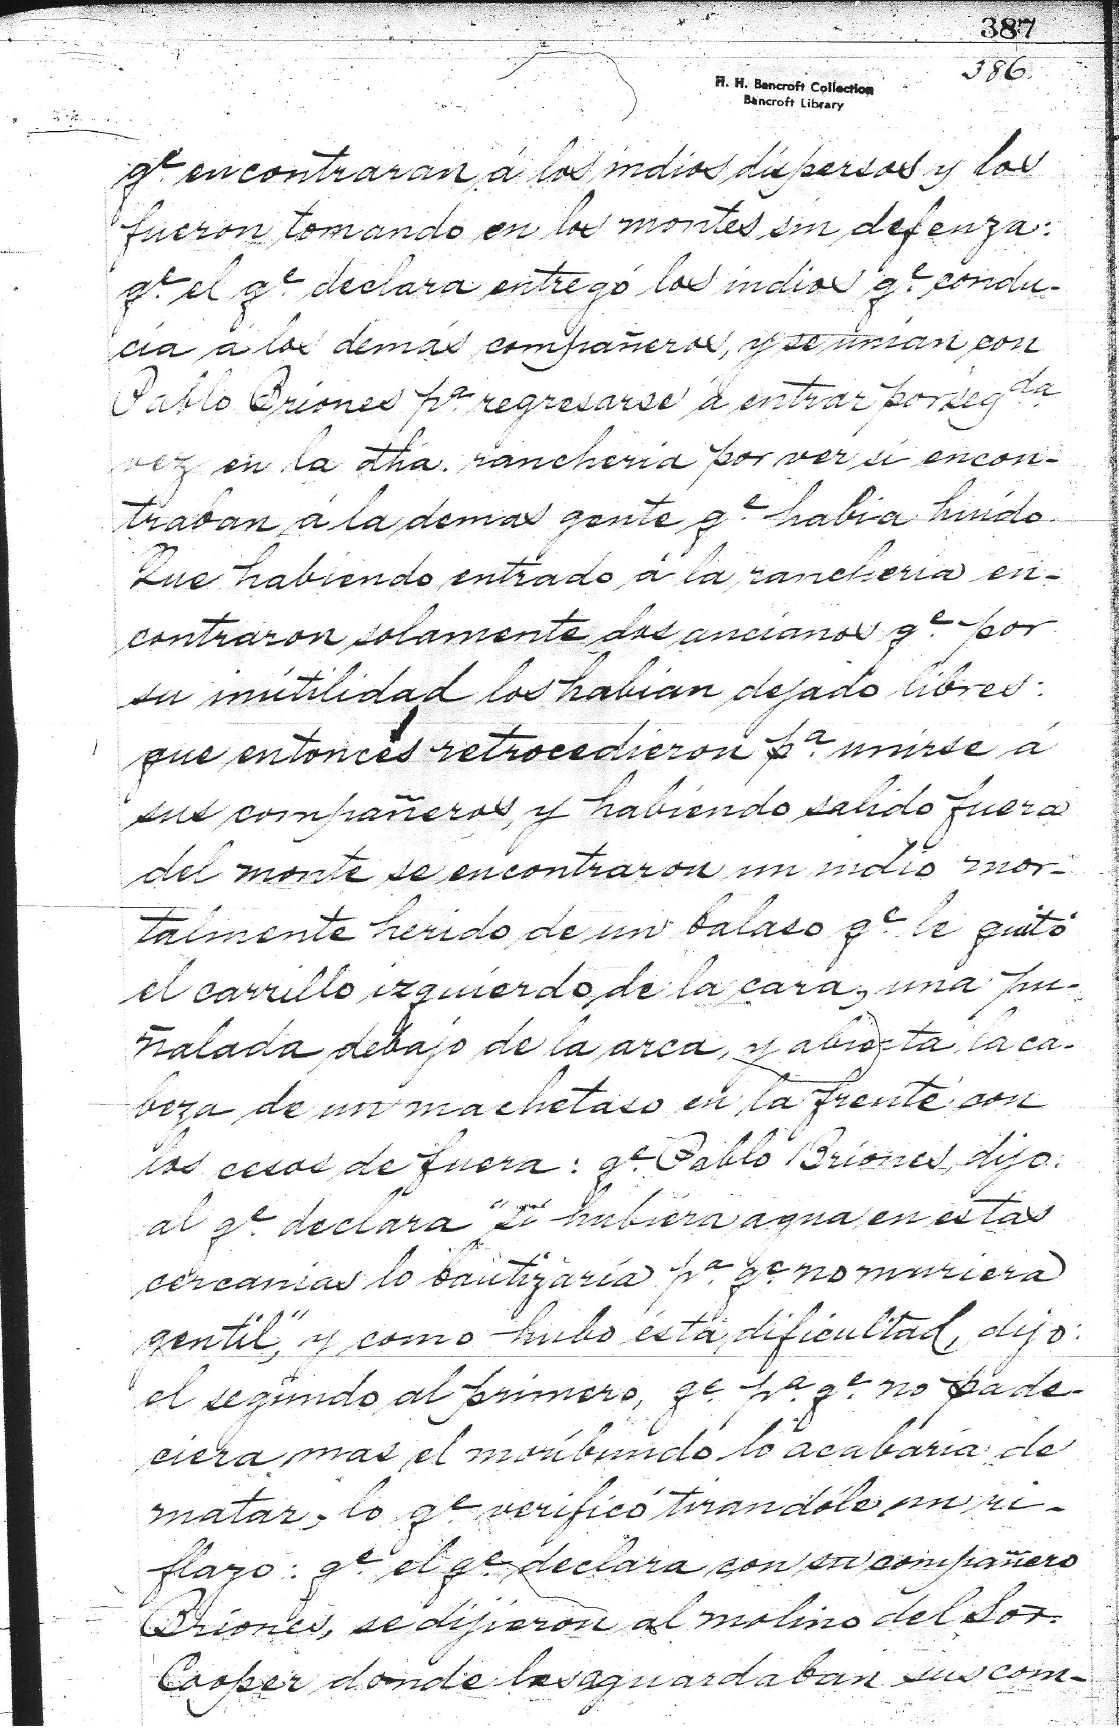 387
386.
H. H. Bancroft Collection
Bancroft Library
qe. encontraran á los indios dispersos y los
fueron tomando en los montes sin defenza:
qe. el qe. declara entregó los indios qe. condu-
cia á los demás compañeros, y se unian con
Pablo Briones pa. regresarse á entrar por segda.
vez en la dha. rancheria por ver si encon-
traban á la demas gente qe. habia huido.
Que habiendo entrado á la rancheria en-
contraron solamente dos ancianos qe. por
su inútilidad los habian dejado libres:
que entoncés retrocedieron pa. unirse á
sus compañeros, y habiendo salido fuera
del monte se encontraron un indio mor-
talmente herido de un balaso qe. le quitó
el carrillo izquierdo de la cara, una pu-
ñalada debajo de la arca, y abierta la ca-
beza de un machetaso en la frente con
los cesos de fuera: qe. Pablo Briones, dijo:
al qe. declara "si hubiera agua en estas
cercanias lo bautizaría pa. qe. no muriera
gentil," y como hubo ésta dificultad, dijo:
el segundo al primero, qe. pa. qe. no pade-
ciera mas el moribundo lo acabaria de
matar, lo qe. verificó tirandóle un ri-
flazo: qe. el qe. declara con su compañero
Briones, se dijieron al molino del Sor.
Cooper donde los aguardaban sus com-